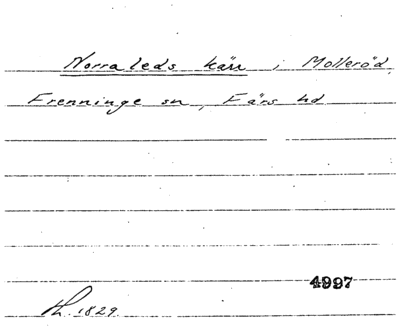 Norraleds kärr i Molleröd,
Frenninge sn, Färs hd
4997
1829.